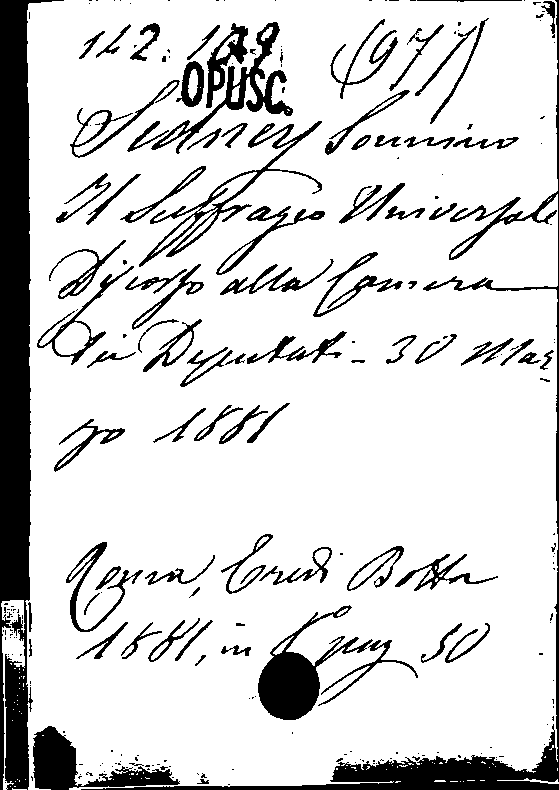 142. 179 (977)
OPUSC.
Sidney Sonnino
Il Suffragio Universale
Discorso alla Camera
dei Deputati - 30 Mar
zo 1881
Roma, Eredi Botta
1881, in 8° pag 50